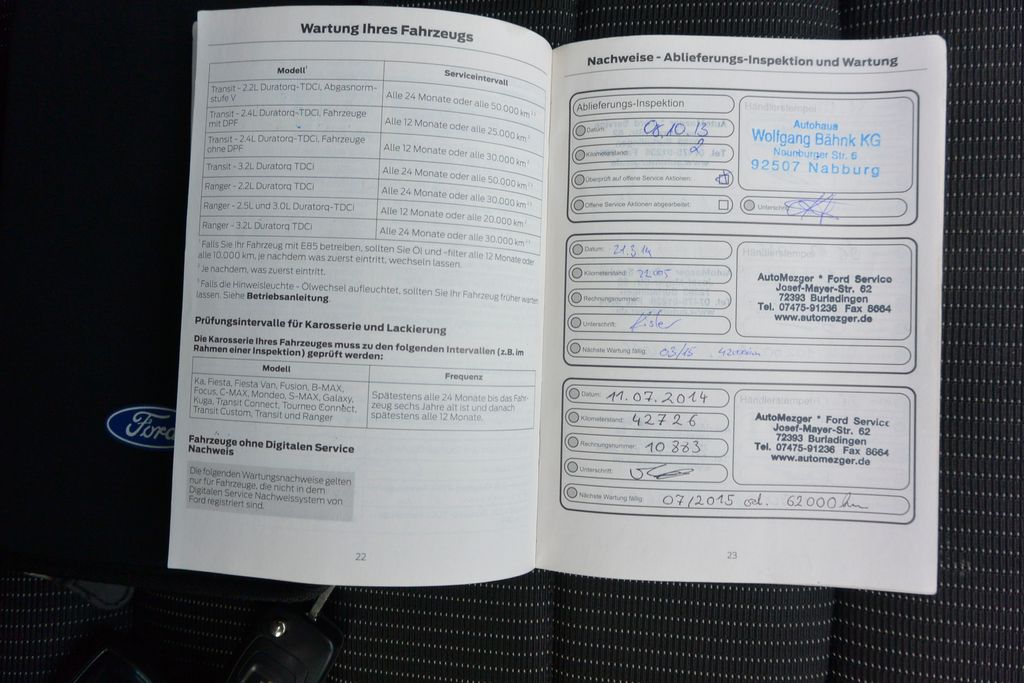 Wartung Ihres Fahrzeugs
Modell¹ Serviceintervall
Transit - 2.2L Duratorq-TDCi, Abgasnorm-
stufe V
Alle 24 Monate oder alle 50.000 km
Transit - 2.4L Duratorq-TDCi, Fahrzeuge
mit DPF
Alle 12 Monate oder alle 25.000 km
Transit - 2.4L Duratorq-TDCi, Fahrzeuge
ohne DPF
Alle 12 Monate oder alle 30.000 km
Transit - 3.2L Duratorq TDCi Alle 24 Monate oder alle 50.000 km
Ranger - 2.2L Duratorq TDCi Alle 24 Monate oder alle 30.000 km
Ranger - 2.5L und 3.0L Duratorq-TDCi Alle 12 Monate oder alle 20.000 km
Ranger - 3.2L Duratorq TDCi Alle 24 Monate oder alle 30.000 km
¹ Falls Sie Ihr Fahrzeug mit E85 betreiben, sollten Sie Öl und -filter alle 12 Monate oder
alle 10.000 km, je nachdem was zuerst eintritt, wechseln lassen.
² Je nachdem, was zuerst eintritt.
³ Falls die Hinweisleuchte - Ölwechsel aufleuchtet, sollten Sie Ihr Fahrzeug früher warten
lassen. Siehe Betriebsanleitung.
Prüfungsintervalle für Karosserie und Lackierung
Die Karosserie Ihres Fahrzeuges muss zu den folgenden Intervallen (z.B. im
Rahmen einer Inspektion) geprüft werden:
Modell Frequenz
Ka, Fiesta, Fiesta Van, Fusion, B-MAX,
Focus, C-MAX, Mondeo, S-MAX, Galaxy,
Kuga, Transit Connect, Tourneo Connect,
Transit Custom, Transit und Ranger
Spätestens alle 24 Monate bis das Fahr-
zeug sechs Jahre alt ist und danach
spätestens alle 12 Monate.
Fahrzeuge ohne Digitalen Service
Nachweis
Die folgenden Wartungsnachweise gelten
nur für Fahrzeuge, die nicht in dem
Digitalen Service Nachweissystem von
Ford registriert sind.
22
Ford
Nachweise - Ablieferungs-Inspektion und Wartung
Ablieferungs-Inspektion
Datum: 08.10.13
Kilometerstand: 2
Überprüft auf offene Service Aktionen:
Offene Service Aktionen abgearbeitet:
Händlerstempel
Autohaus
Wolfgang Bähnk KG
Naunburger Str. 6
92507 Nabburg
Unterschrift
Datum: 21.3.14
Kilometerstand: 22005
Rechnungsnummer:
Unterschrift:
Nächste Wartung fällig: 03/15
Händlerstempel
AutoMezger * Ford Service
Josef-Mayer-Str. 62
72393 Burladingen
Tel. 07475-91236 Fax 8664
www.automezger.de
Datum: 11.07.2014
Kilometerstand: 42726
Rechnungsnummer: 10883
Unterschrift:
Nächste Wartung fällig: 07/2015 od. 62000 km
Händlerstempel
AutoMezger * Ford Service
Josef-Mayer-Str. 62
72393 Burladingen
Tel. 07475-91236 Fax 8664
www.automezger.de
23